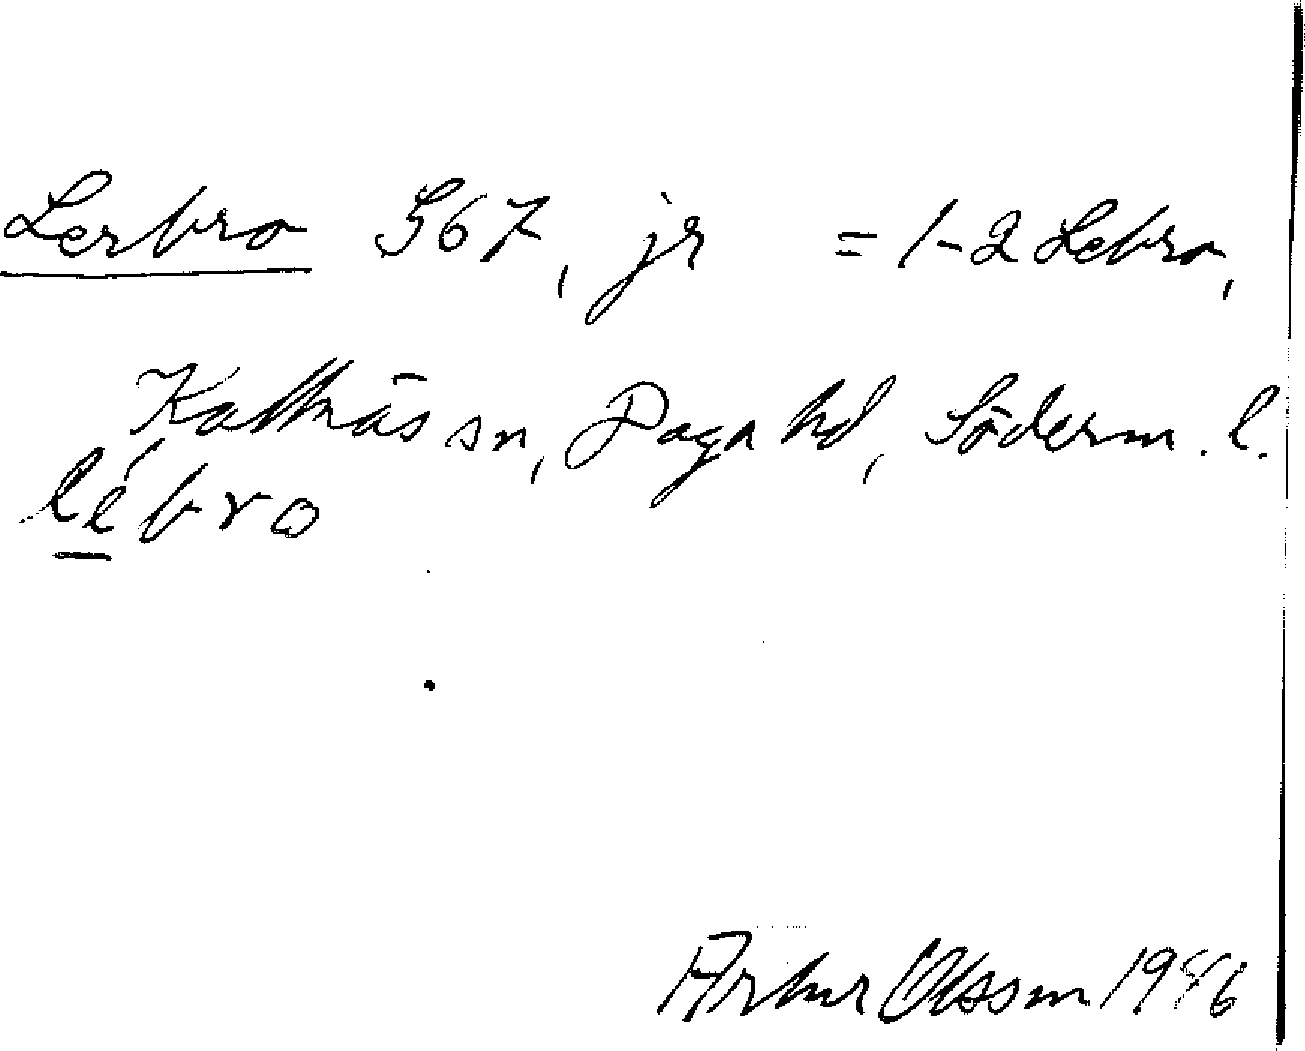 Lerbro S67, jr = 1-2 Lebro,
Kattnäs sn, Daga hd, Söderm. l.
lébro
Arthur Olsson 1946